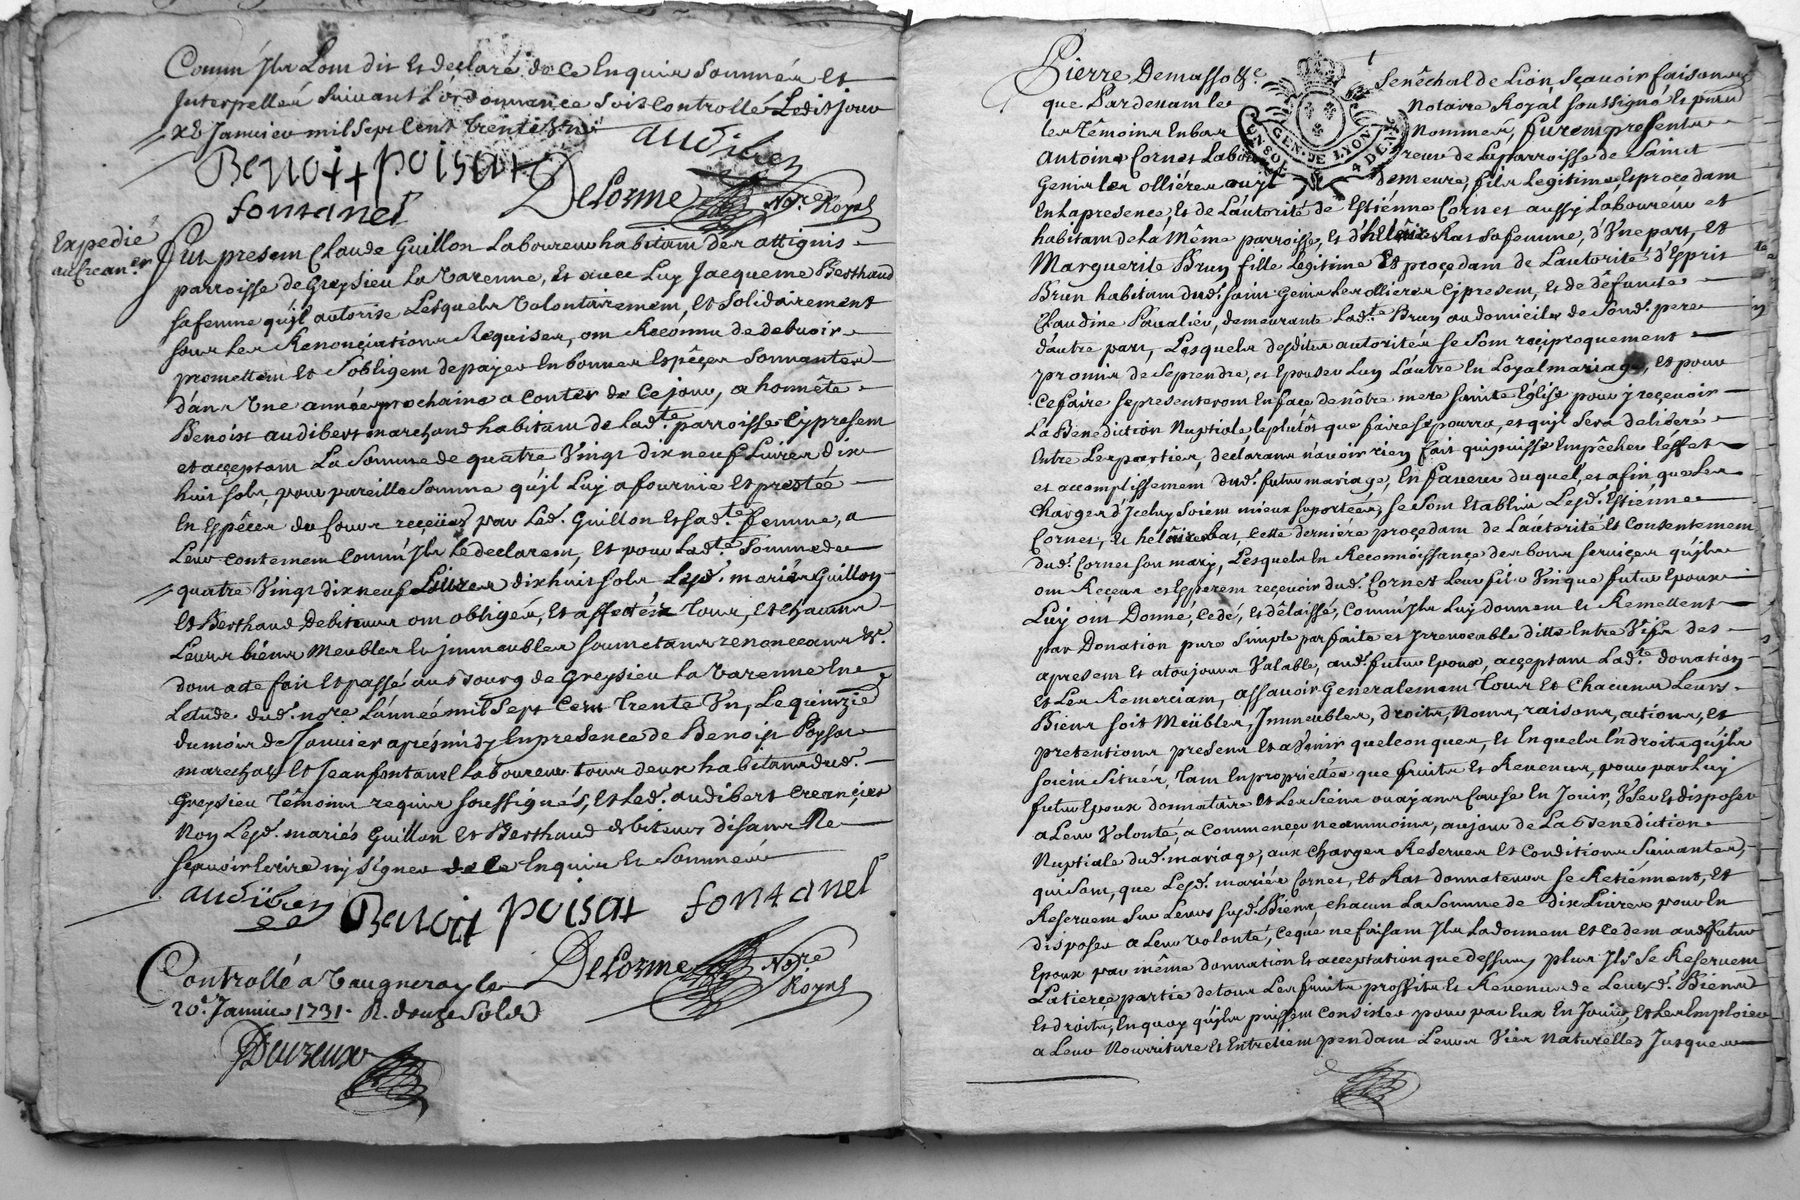 Comm' Ils Lont dit et declaré de ce Enquis Sommés et
Interpellés suivant L'ordonnance soit Controllé Ledit jour
xv Janvier mil sept Cent trente Vn
audiber
Benoit poisat
DeLorme Nore. Royal
fontanel
Expedié
au Crean.er
Fut present Claude Guillon Laboureur habitant des attignis
parroisse de Greysieu La Varenne, et avec Luy Jacqueme Berthaud
sa femme qu'jl autorise Lesquels Volontairement, et Solidairement
sous Les Renonçiations Requises, ont Reconnu de debvoir
promettent et s'obligent de payer En bonnes Espêçes Sonnantes
dans Vne année prochaine a Conter de Ce jour, a honnête
Benoist audibert marchand habitant de Lad.te parroisse Cy present
et acçeptant La Somme de quatre Vingt dix neuf Livres dix
huit sols, pour pareille Somme qu'jl Luy a fournie et prestée
En Espêçes du Cours reçeües par Led. Guillon et sad.te femme, a
Leur contentement Comm'Ils Le declarent, et pour Lad.te Somme de
quatre Vingt dix neuf Livres dix huit sols Lesd. mariés Guillon
et Berthaud debiteurs ont obligés, et affectés tous, et chacuns
Leurs biens meubles et jmmeubles soumettans renonceans &c.
dont acte fait et passé au bourg de Greysieu La Varenne En
Letude dud. nore L'année mil sept Cent trente Vn, Le quinzie
du mois de Janvier aprés midy En presence de Benoist Poysat
marechal et Jean fontanel Laboureur tous deux habitans dud.
Greysieu têmoins requis soussignés, et Led. audibert creançier
Non Lesd. mariés Guillon et Berthaud debiteurs disans Ne
sçavoir Ecrire ny signer de ce Enquis et Sommés
audiber
Benoit poisat fontanel
DeLorme Nore
Royal
Controllé a Vaugneray Le
20.e Janvier 1731. R. douze Sols
Pierre Demasso &c. Senêchal de Lion, sçavoir faisons
que Pardevant Le Notaire Royal soussigné et present
les têmoins En bas Nommés, furent presents
GEN. DE LYON
Antoine Cornet Laboureur de La parroisse de Saint
Genis les ollières ou jl demeure, fils Legitime, et proçedant
En La presence, et de L'autorité de Estiénne Cornet aussy Laboureur et
habitant de La Même parroisse, et d'hélaine Ras sa femme, d'Vne part, et
Marguerite Brun fille Legitime Et proçedant de L'autorité d'Esprit
Brun habitant dud. saint Genis Les ollières Cy present, et de défunte
Claudine Pavalier, demeurante Lad.te Brun au domicile de Sond. pere
d'autre part, Lesquels desdites autorités se sont reçiproquement
promis de se prendre, et Epouser Lun L'autre En Loyal mariage, et pour
Ce faire se presenteront En face de nôtre mere sainte Église pour y reçevoir
La Benediction Nuptiale, le plutôt que faire se pourra, et qu'jl sera deliberé
Entre Les parties, declarans n'avoir rien fait qui puisse Empêcher L'effet
et accomplissement dud. futur mariage, En faveur duquel, et afin que Les
Charges d'Iceluy soient mieux suportées, se sont Etablis Lesd. Estiénne
Cornet, et hélaine Ras, Cette derniére proçedant de L'autorité et Consentement
dud. Cornet son mary, Lesquels En Reconnoissance des bons serviçes qu'jls
ont Reçeus et Esperent reçevoir dud. Cornet Leur fils Vnique futur Epoux
Luy ont Donné, Cedé, et délaissé, Comm'Ils Luy donnent et Remettent
par Donation pure simple parfaite et Irrevocable ditte Entre Vifs des
apresent et atoujours Valable, aud. futur Epoux, acçeptant Lad.te donation
et Les Remerciant, assavoir Generalement tous et Chacuns Leurs
Biens soit Meübles, Immeubles, droits, Noms, raisons, actions, et
pretentions presens et a Venir quelconques, et En quels Endroits qu'jls
soient Situés, tant En proprietés que fruits et Revenus, pour par Luy
futur Epoux donnataire et Les siens ou ayans Cause En Jouir, Vser et disposer
a Leur Volonté, a Commencer neanmoins, au jour de La Benediction
Nuptiale dud. mariage, aux Charges Reserves et Conditions Suivantes,
qui sont, que Lesd. mariés Cornet, et Ras donnateurs se Retiénnent, et
Reservent sur Leurs susd. Biens chacun La Somme de dix Livres pour En
disposer a Leur volonté, Ce que ne faisant Ils La donnent et Cedent aud. futur
Epoux par même donnation et acceptation que dessus, plus Ils se Reservent
La tierçe partie de tous Les fruits proffits et Revenus de Leursd. Biens
et droits, En quoy qu'jls puissent Consister pour par Eux En Jouir, et Les Emploier
a Leur Nourriture et Entretient pendant Leurs Vies Naturelles Jusques